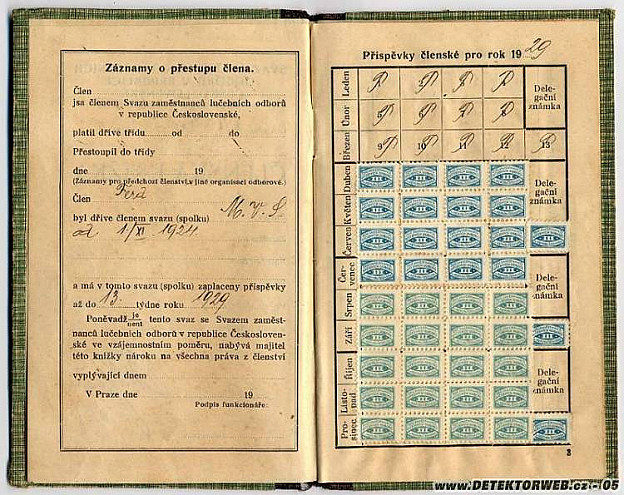 Záznamy o přestupu člena.
Člen
jsa členem Svazu zaměstnanců lučebních odborů
v republice Československé,
platil dříve třídu od do
Přestoupil do třídy
dne 19
(Záznamy pro předchozí členství v jiné organisaci odborové.)
Člen
byl dříve členem svazu (spolku) M. V. S
od 1/XI 1924
a má v tomto svazu (spolku) zaplaceny příspěvky
až do 13. týdne roku 1929
Poněvadž je
není tento svaz se Svazem zaměst-
nanců lučebních odborů v republice Českosloven-
ské ve vzájemnostním poměru, nabývá majitel
této knížky nároku na všechna práva z členství
vyplývající dnem
V Praze dne 19
Podpis funkcionáře:
Příspěvky členské pro rok 1929
Leden
Únor
Březen 9 10 11 12 13
Duben
Květen
Červen
Čer-
venec
Srpen
Září
Říjen
Listo-
pad
Pro-
sinec
Dele-
gační
známka
Dele-
gační
známka
Dele-
gační
známka
Dele-
gační
známka
3
www.DETEKTORWEB.cz